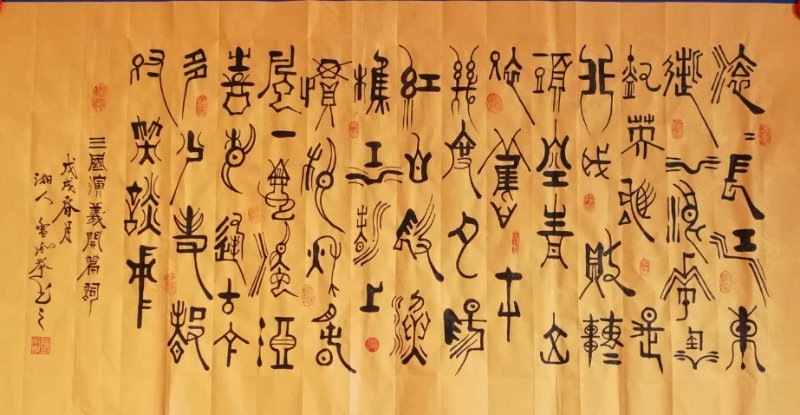 滾〻長江東
逝水浪花淘
盡英雄是
非成敗轉
頭空青山
依舊在
幾度夕陽
紅白髮漁
樵江渚上
慣看秋月春
風一壺濁酒
喜相逢古今
多少事都
付笑談中
三國演義開篇詞
戊戌春月
湘人